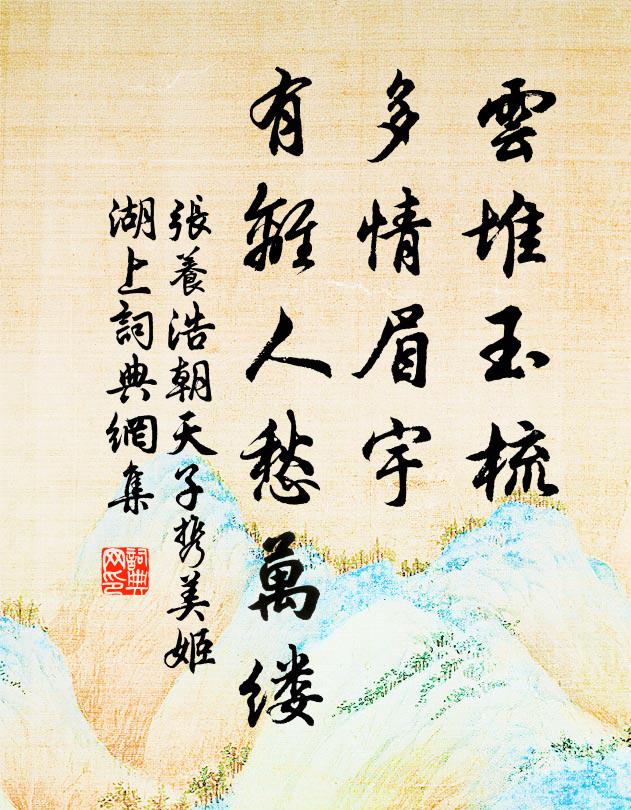 雲堆玉梳
多情眉宇
有離人愁萬缕
張養浩朝天子携美姬
湖上詞典網集
詞典
网印